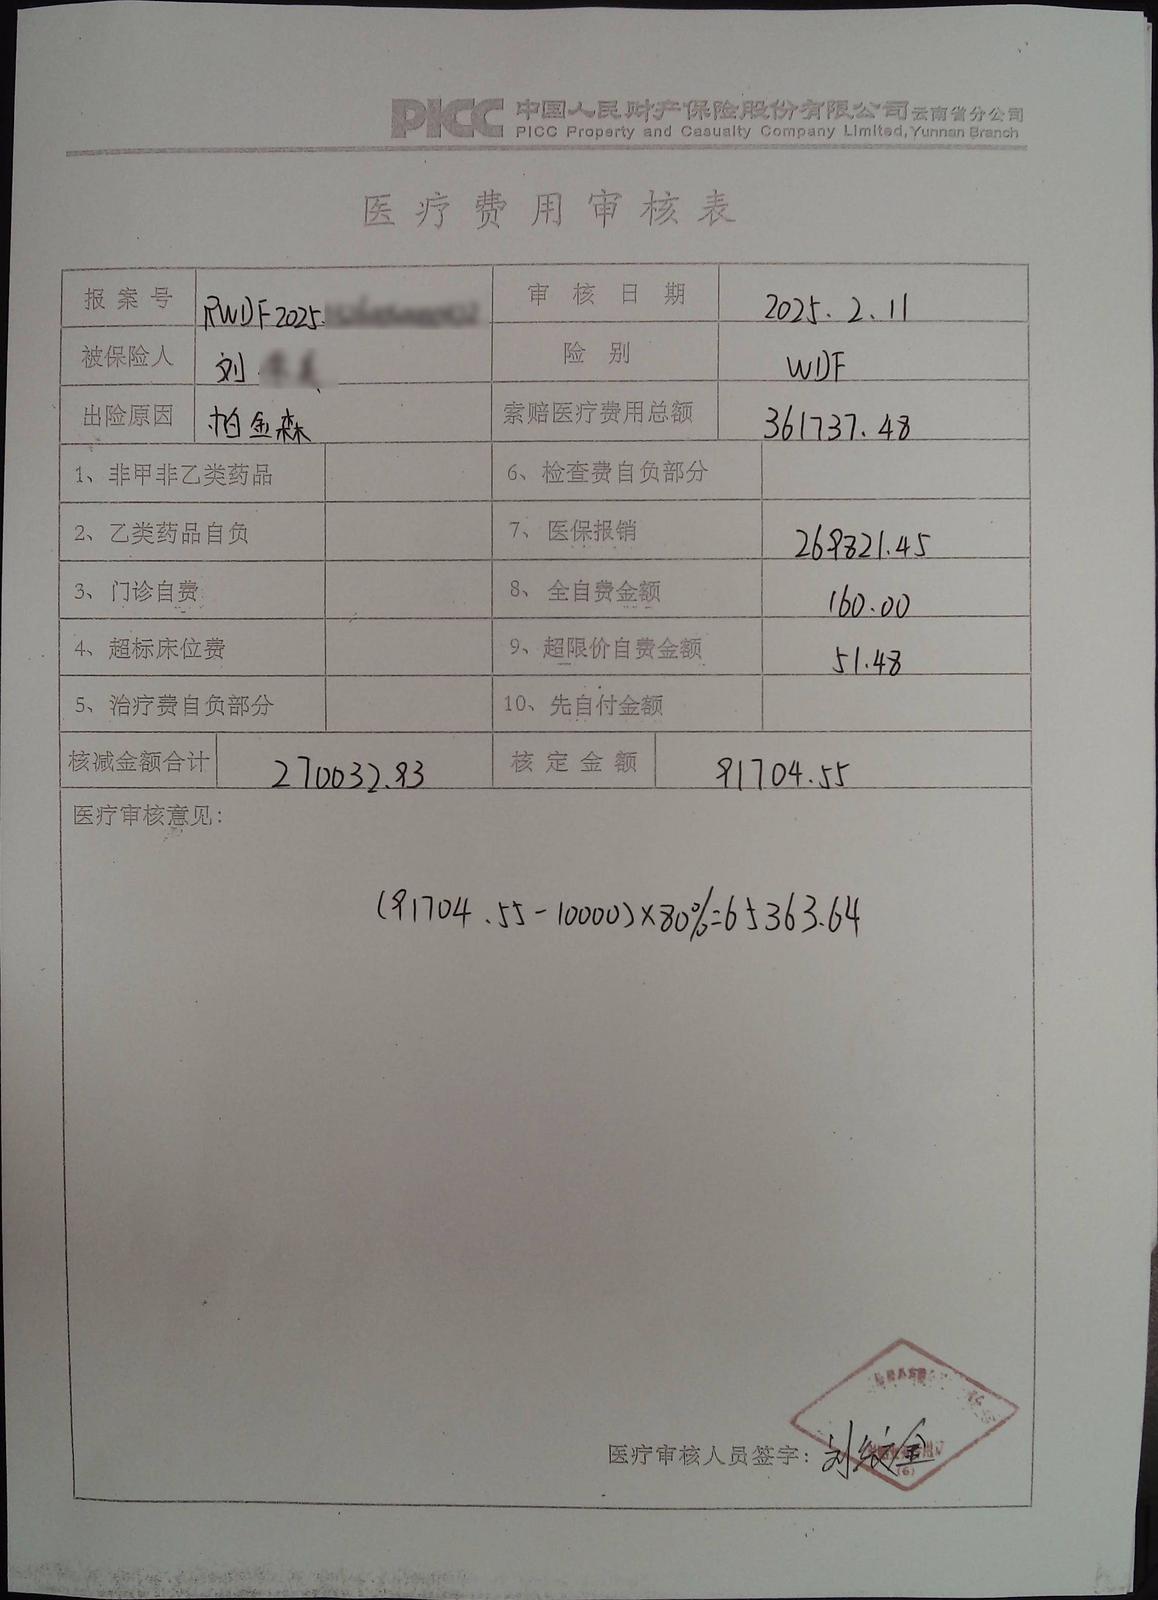 PICC 中国人民财产保险股份有限公司云南省分公司
PICC Property and Casualty Company Limited, Yunnan Branch
医疗费用审核表
报案号 RWDF2025 审核日期 2025.2.11
被保险人 刘 险别 WDF
出险原因 帕金森 索赔医疗费用总额 361737.48
1、非甲非乙类药品 6、检查费自负部分
2、乙类药品自负 7、医保报销 269821.45
3、门诊自费 8、全自费金额 160.00
4、超标床位费 9、超限价自费金额 51.48
5、治疗费自负部分 10、先自付金额
核减金额合计 270032.93 核定金额 91704.55
医疗审核意见：
(91704.55-10000)×80%=65363.64
医疗审核人员签字：刘
(6)